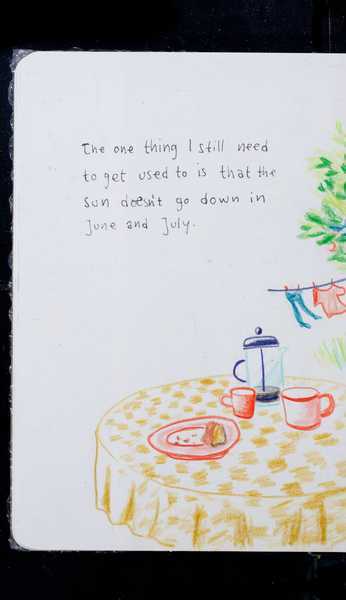 The one thing I still need
to get used to is that the
sun doesn't go down in
June and July.